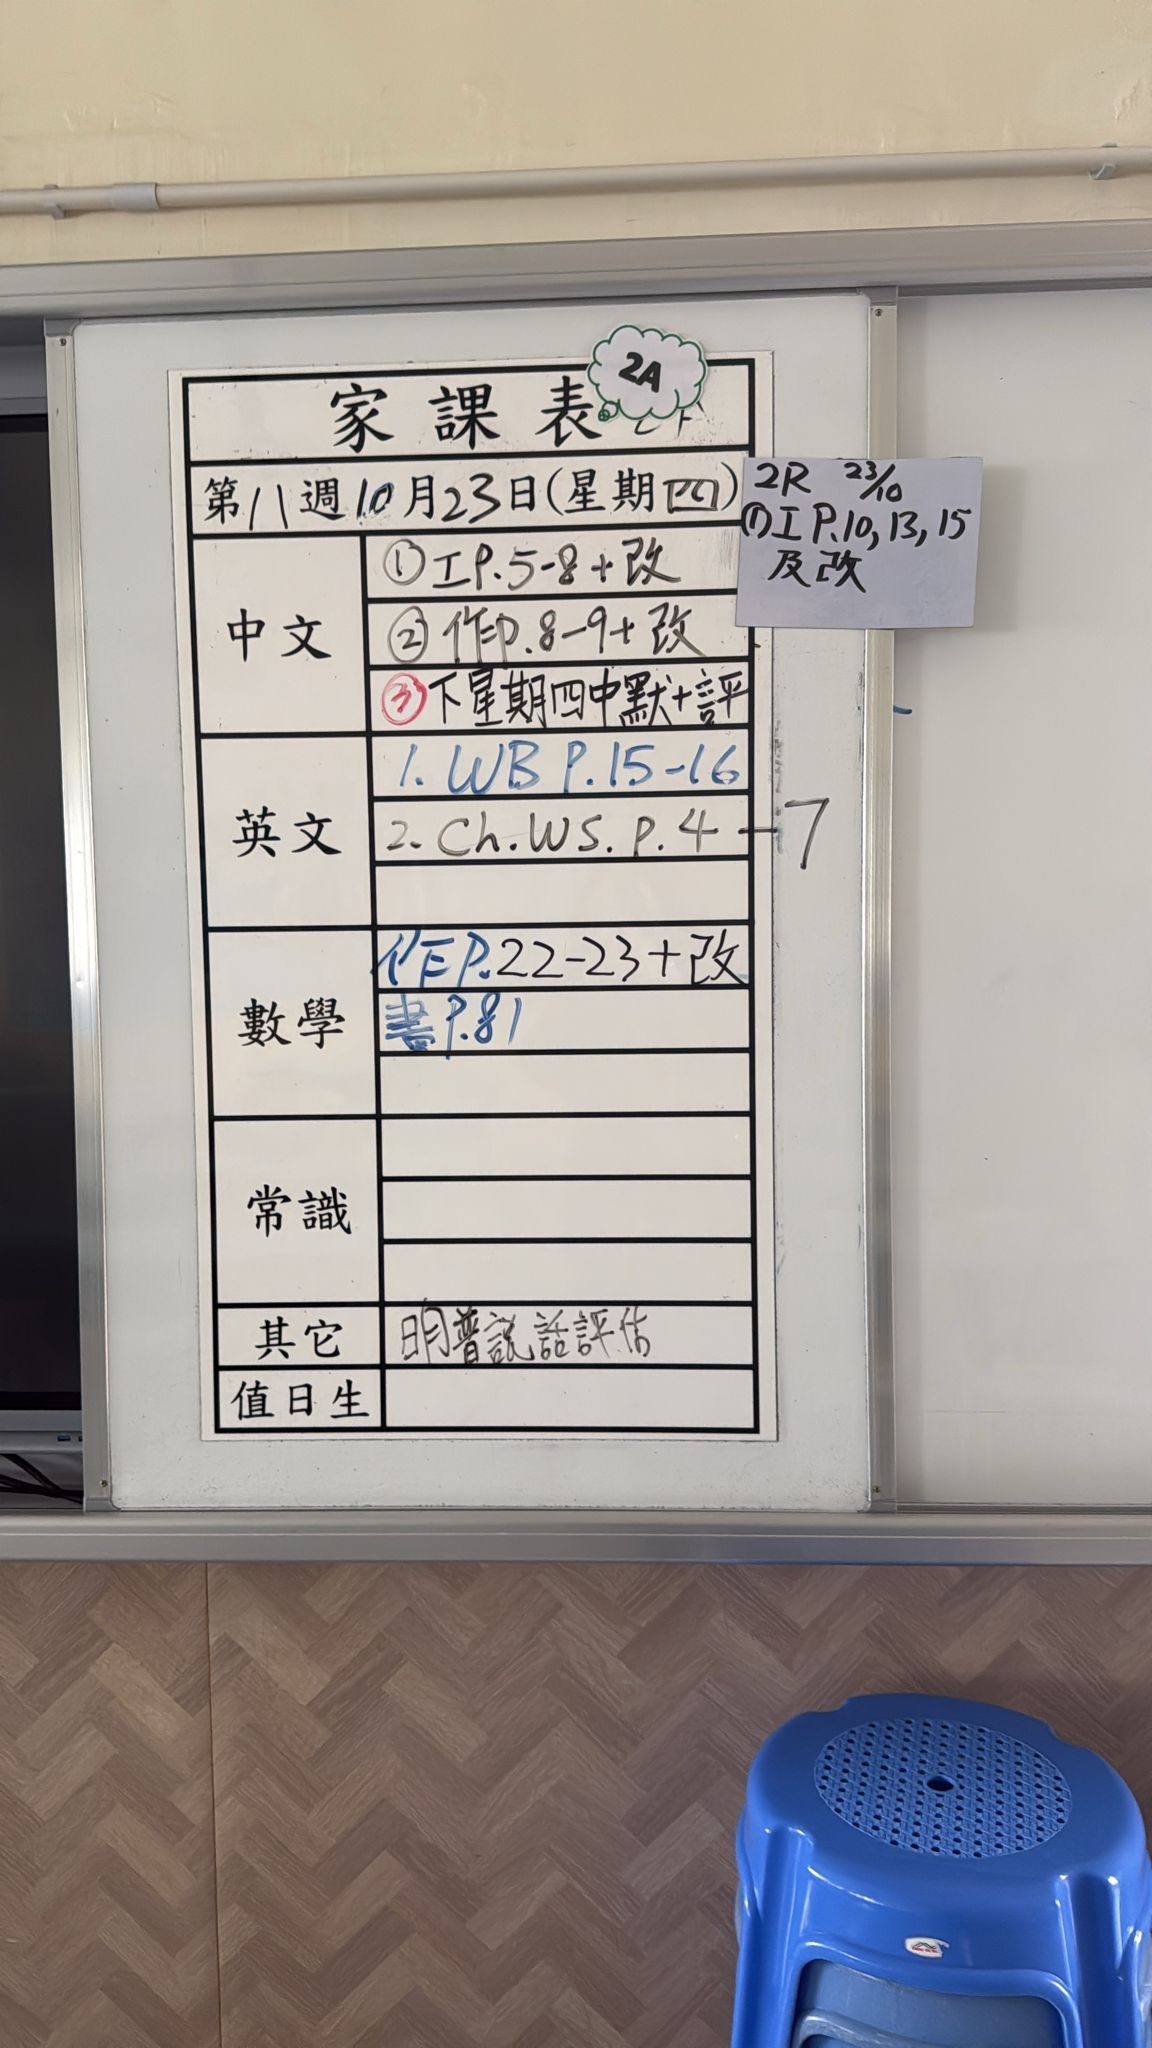 家課表
2A
第八週10月23日(星期四)
中文
①工P.5-8+改
②作P.8-9+改
③下星期四中默+評
英文
1. WB P.15-16
2. Ch.WS. P.4-7
數學
作P.22-23+改
書P.81
常識
其它
明普說話評估
值日生
2R 23/10
①工P.10,13,15
及改